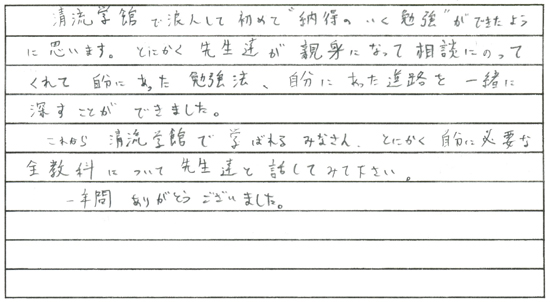 清流学館で浪人して初めて"納得のいく勉強"ができたよう
に思います。とにかく先生達が親身になって相談にのって
くれて自分にあった勉強法、自分にあった進路を一緒に
深すことができました。
これから清流学館で学ばれるみなさん、とにかく自分に必要な
全教科について先生達と話してみて下さい。
一年間ありがとうございました。